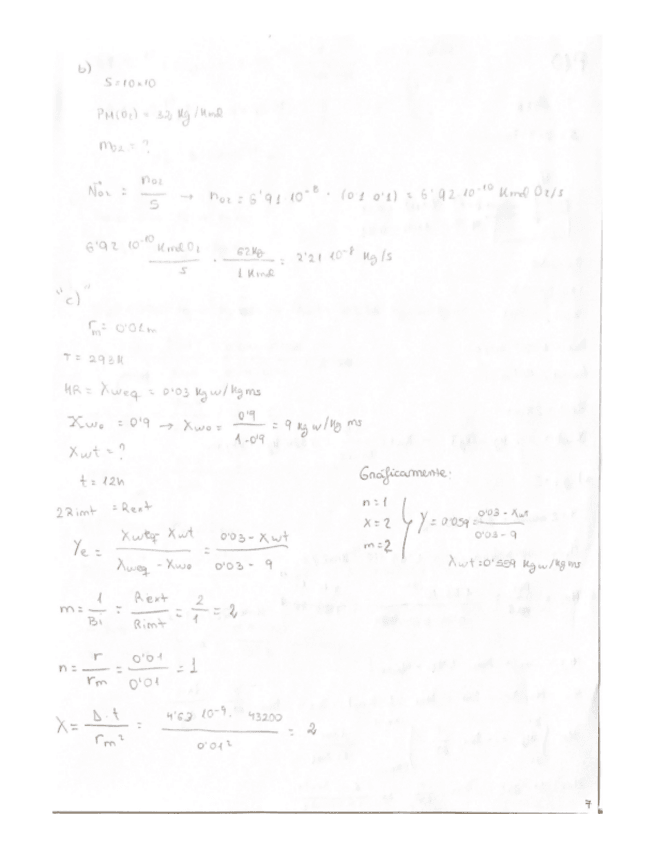 b)
S = 10×10
PM(O2) = 32 Kg/Kmol
mO2 = ?
NO2 = nO2 / S → nO2 = 6'91 10⁻⁸ · (0'1 0'1) = 6'92 · 10⁻¹⁰ Kmol O2/s
6'92 10⁻¹⁰ Kmol O2 / s · 62 Kg / 1 Kmol = 2'21 10⁻⁸ Kg/s
"c)"
rm = 0'01m
T = 293K
HR = Xweq = 0'03 Kg w/Kg ms
Xwo = 0'9 → Xwo = 0'9 / 1-0'9 = 9 Kg w/Kg ms
Xwt = ?
t = 12h
2Rint = Rext
Ye = Xweq Xwt / Xweq - Xwo = 0'03 - Xwt / 0'03 - 9
m = 1 / Bi = Rext / Rint = 2 / 1 = 2
n = r / rm = 0'01 / 0'01 = 1
X = D·t / rm² = 4'63 10⁻⁹ · 43200 / 0'01² = 2
Gráficamente:
n = 1
X = 2
m = 2
Y = 0'059 = 0'03 - Xwt / 0'03 - 9
Xwt = 0'559 Kg w/Kg ms
7